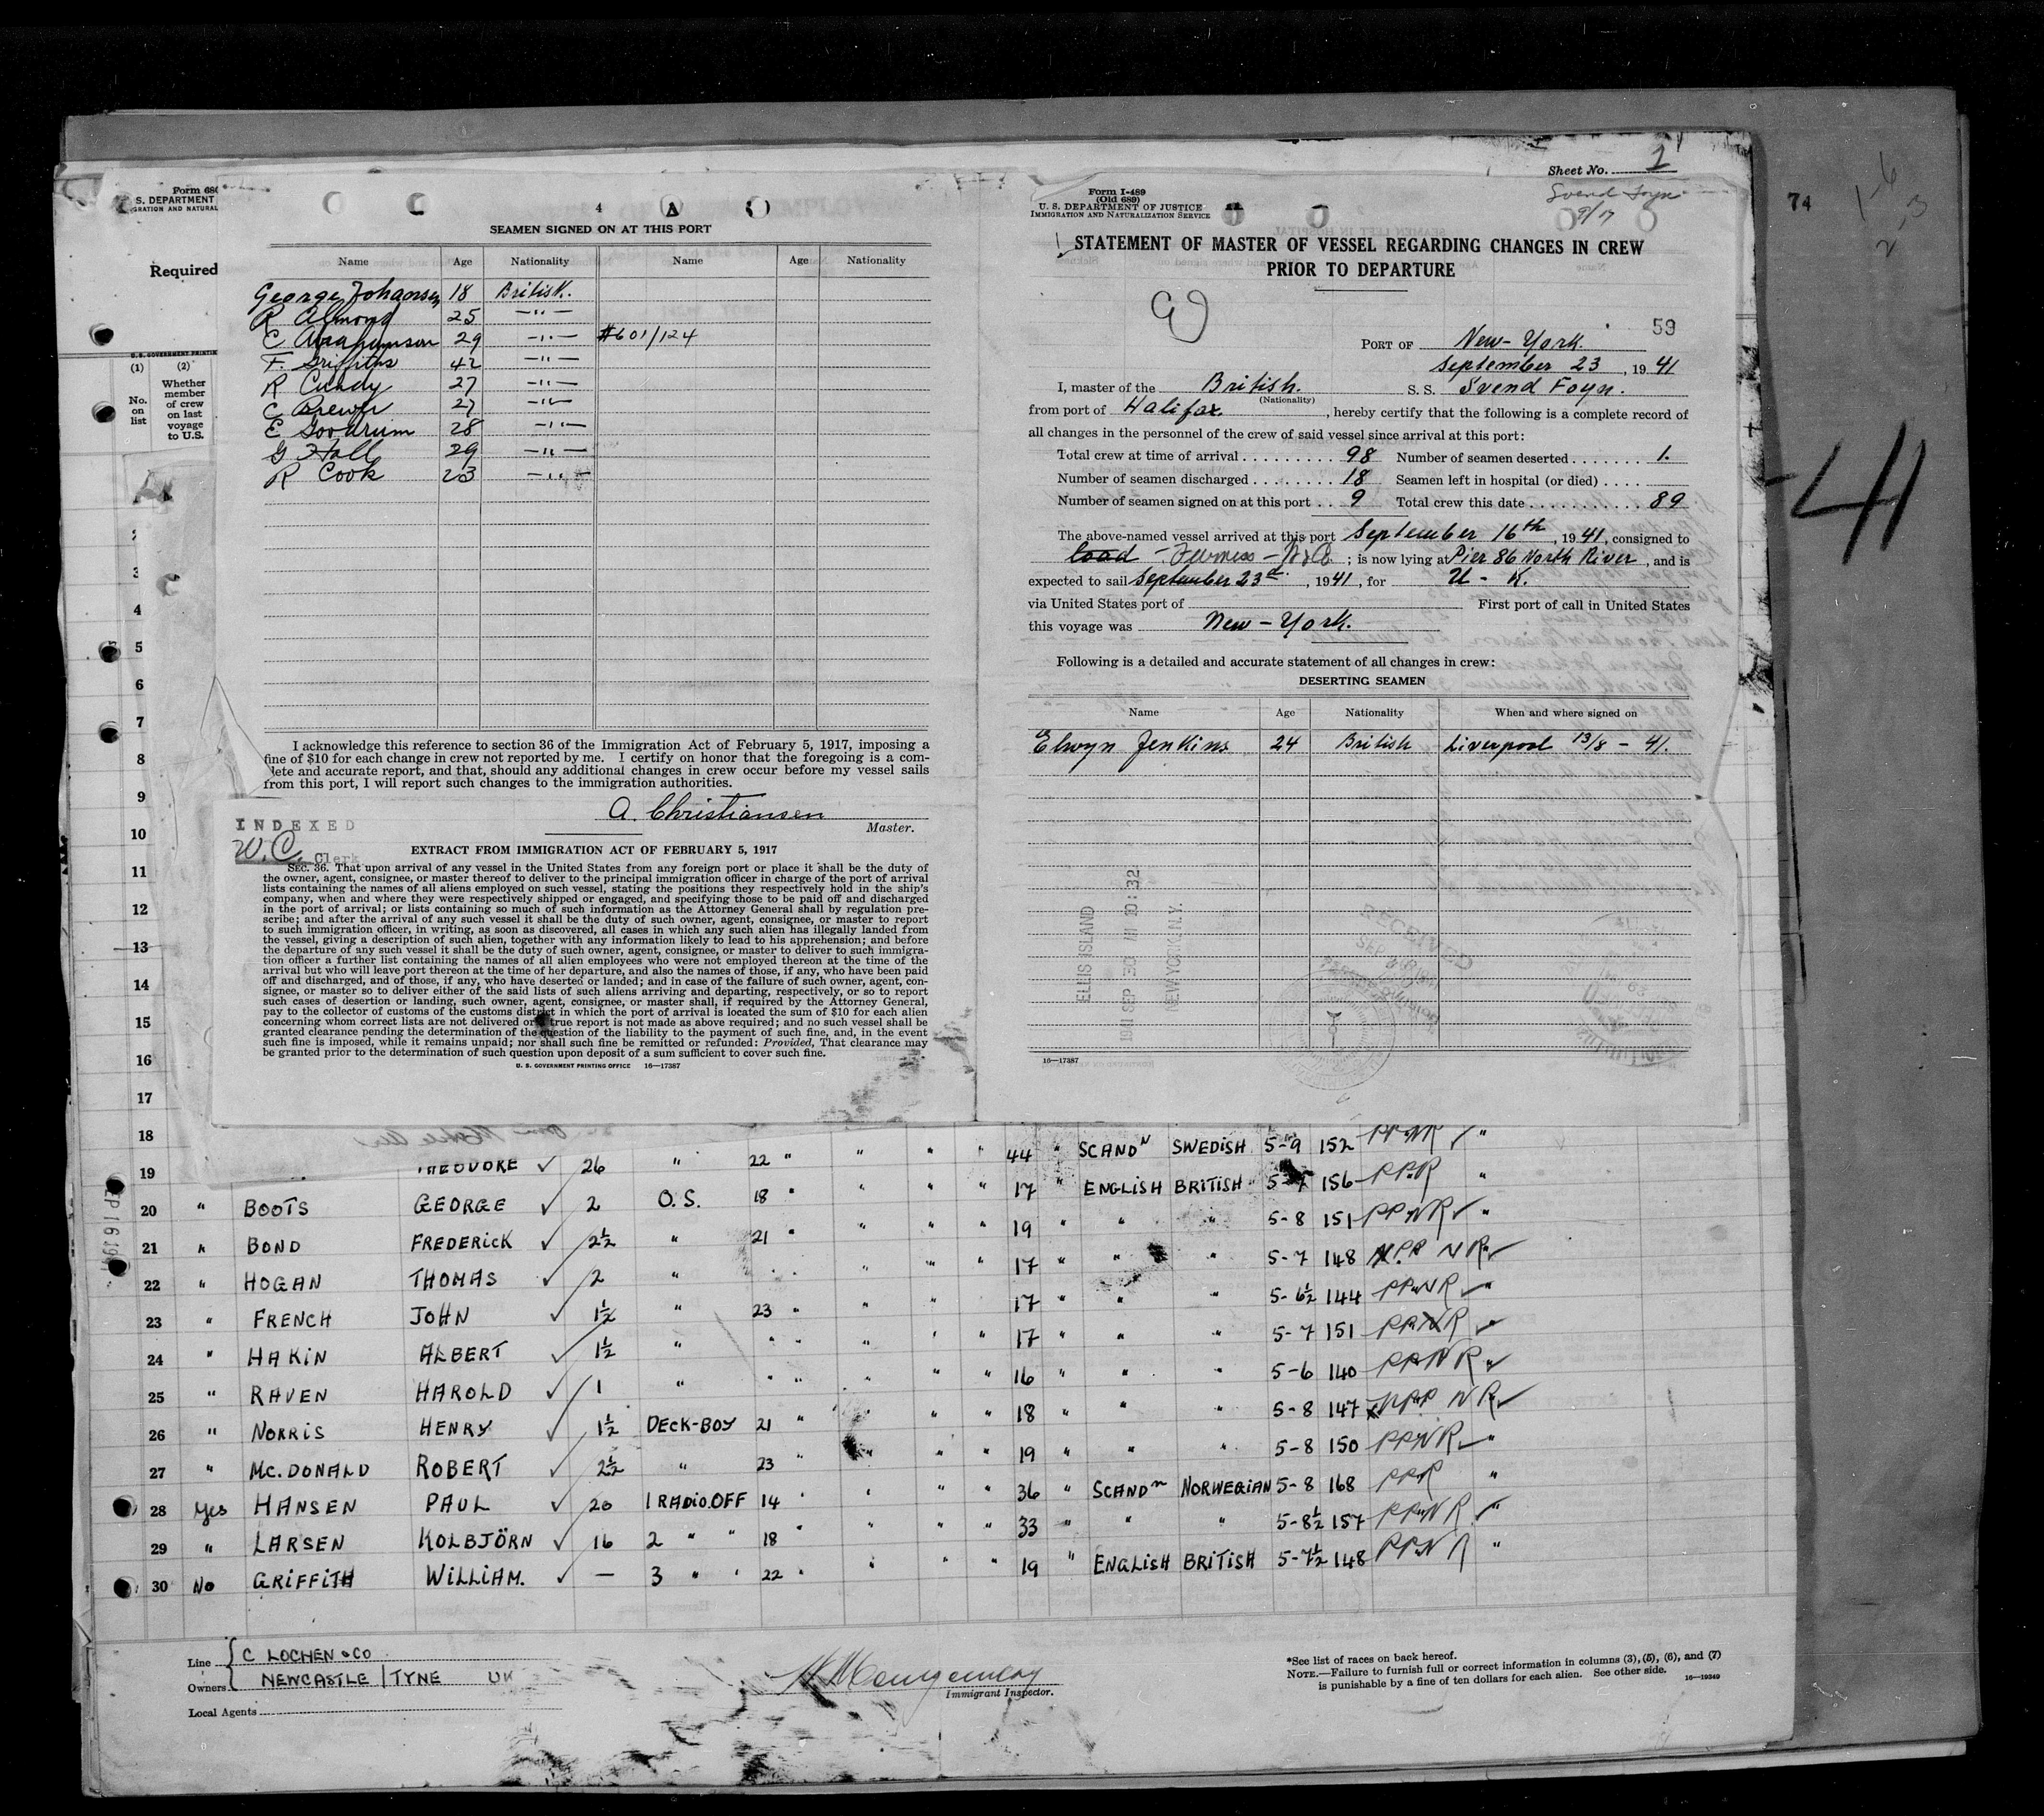 Sheet No. 1
Svend Foyn
9/17
74
Form 689
S. DEPARTMENT
GRATION AND NATURAL
Required
U. S. GOVERNMENT PRINTIN
(1)
No.
on
list
(2)
Whether
member
of crew
on last
voyage
to U.S.
3
4
5
6
7
8
9
10
11
12
13
14
15
16
17
18
4
SEAMEN SIGNED ON AT THIS PORT
Name Age Nationality Name Age Nationality
George Johansen 18 British.
R Almond 25 -"-
C 29 -"- #601/124
F. Griffiths 42 -"-
R Cundy 27 -"-
C Brewer 27 -"-
E Goodrum 28 -"-
G Hall 29 -"-
R Cook 23 -"-
I acknowledge this reference to section 36 of the Immigration Act of February 5, 1917, imposing a
fine of $10 for each change in crew not reported by me. I certify on honor that the foregoing is a com-
lete and accurate report, and that, should any additional changes in crew occur before my vessel sails
from this port, I will report such changes to the immigration authorities.
A. Christiansen
Master.
INDEXED
W.C. Clerk
EXTRACT FROM IMMIGRATION ACT OF FEBRUARY 5, 1917
SEC. 36. That upon arrival of any vessel in the United States from any foreign port or place it shall be the duty of
the owner, agent, consignee, or master thereof to deliver to the principal immigration officer in charge of the port of arrival
lists containing the names of all aliens employed on such vessel, stating the positions they respectively hold in the ship's
company, when and where they were respectively shipped or engaged, and specifying those to be paid off and discharged
in the port of arrival; or lists containing so much of such information as the Attorney General shall by regulation pre-
scribe; and after the arrival of any such vessel it shall be the duty of such owner, agent, consignee, or master to report
to such immigration officer, in writing, as soon as discovered, all cases in which any such alien has illegally landed from
the vessel, giving a description of such alien, together with any information likely to lead to his apprehension; and before
the departure of any such vessel it shall be the duty of such owner, agent, consignee, or master to deliver to such immigra-
tion officer a further list containing the names of all alien employees who were not employed thereon at the time of the
arrival but who will leave port thereon at the time of her departure, and also the names of those, if any, who have been paid
off and discharged, and of those, if any, who have deserted or landed; and in case of the failure of such owner, agent, con-
signee, or master so to deliver either of the said lists of such aliens arriving and departing, respectively, or so to report
such cases of desertion or landing, such owner, agent, consignee, or master shall, if required by the Attorney General,
pay to the collector of customs of the customs district in which the port of arrival is located the sum of $10 for each alien
concerning whom correct lists are not delivered or true report is not made as above required; and no such vessel shall be
granted clearance pending the determination of the question of the liability to the payment of such fine, and, in the event
such fine is imposed, while it remains unpaid; nor shall such fine be remitted or refunded: Provided, That clearance may
be granted prior to the determination of such question upon deposit of a sum sufficient to cover such fine.
U. S. GOVERNMENT PRINTING OFFICE 16—17387
Form I-489
(Old 689)
U. S. DEPARTMENT OF JUSTICE
IMMIGRATION AND NATURALIZATION SERVICE
STATEMENT OF MASTER OF VESSEL REGARDING CHANGES IN CREW
PRIOR TO DEPARTURE
59
PORT OF New-York.
September 23, 1941
I, master of the British. S. S. Svend Foyn.
(Nationality)
from port of Halifax., hereby certify that the following is a complete record of
all changes in the personnel of the crew of said vessel since arrival at this port:
Total crew at time of arrival 98 Number of seamen deserted 1.
Number of seamen discharged 18 Seamen left in hospital (or died)
Number of seamen signed on at this port 9 Total crew this date 89
The above-named vessel arrived at this port September 16th, 1941, consigned to
load - Furness - ; is now lying at Pier 86 North River, and is
expected to sail September 23d., 1941, for U - K.
via United States port of First port of call in United States
this voyage was New-York.
Following is a detailed and accurate statement of all changes in crew:
DESERTING SEAMEN
Name Age Nationality When and where signed on
Elwyn Jenkins 24 British Liverpool 13/8 - 41.
ELLIS ISLAND
1941 SEP 30 AM 10:32
NEW YORK, N.Y.
RECEIVED
16—17387
-41
44 " SCANDN SWEDISH 5-9 152 PPNR ✓ "
19 THEODORE ✓ 26 " 22 " " " " 17 " ENGLISH BRITISH 5-7 156 PPR "
20 " BOOTS GEORGE ✓ 2 O.S. 18 " " " " 19 " " " 5-8 151 PPNR ✓ "
21 " BOND FREDERICK ✓ 2½ " 21 " " " " 17 " " " 5-7 148 PP NR ✓
22 " HOGAN THOMAS ✓ 2 " " " " " " 17 " " " 5-6½ 144 PPNR ✓ "
23 " FRENCH JOHN ✓ 1½ " 23 " " " " 17 " " " 5-7 151 PPNR ✓
24 " HAKIN ALBERT ✓ 1½ " " " " " " 16 " " " 5-6 140 PPNR ✓
25 " RAVEN HAROLD ✓ 1 " " " " " " 18 " " " 5-8 147 NPP NR ✓
26 " NORRIS HENRY ✓ 1½ DECK-BOY 21 " " " " 19 " " " 5-8 150 PPNR ✓ "
27 " MC.DONALD ROBERT ✓ 2½ " 23 " " " " 36 " SCANDN NORWEGIAN 5-8 168 PPR "
28 Yes HANSEN PAUL ✓ 20 1 RADIO.OFF 14 " " " " 33 " " " 5-8½ 157 PPNR ✓ "
29 " LARSEN KOLBJÖRN ✓ 16 2 " " 18 " " " " 19 " ENGLISH BRITISH 5-7½ 148 PPNR "
30 No GRIFFITH WILLIAM. ✓ — 3 " " 22 "
Line C LOCHEN & CO
Owners NEWCASTLE / TYNE UK
Local Agents
Immigrant Inspector.
*See list of races on back hereof.
NOTE.—Failure to furnish full or correct information in columns (3), (5), (6), and (7)
is punishable by a fine of ten dollars for each alien. See other side. 16—19349